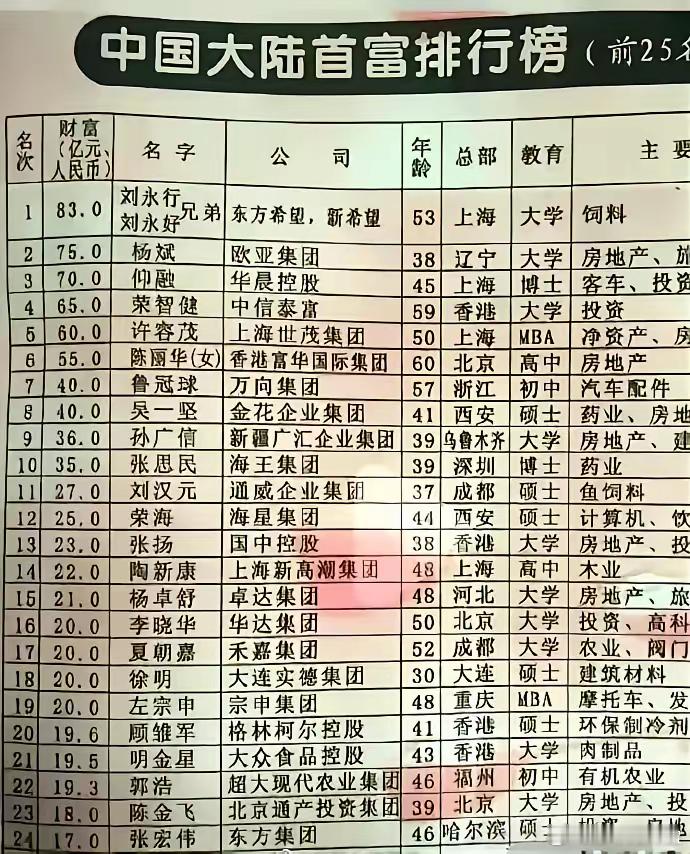 中国大陆首富排行榜(前25名
名次 财富(亿元、人民币) 名字 公司 年龄 总部 教育 主要
1 83.0 刘永行 刘永好 兄弟 东方希望，新希望 53 上海 大学 饲料
2 75.0 杨斌 欧亚集团 38 辽宁 大学 房地产、旅
3 70.0 仰融 华晨控股 45 上海 博士 客车、投资
4 65.0 荣智健 中信泰富 59 香港 大学 投资
5 60.0 许容茂 上海世茂集团 50 上海 MBA 净资产、房
6 55.0 陈丽华(女) 香港富华国际集团 60 北京 高中 房地产
7 40.0 鲁冠球 万向集团 57 浙江 初中 汽车配件
8 40.0 吴一坚 金花企业集团 41 西安 硕士 药业、房地
9 36.0 孙广信 新疆广汇企业集团 39 乌鲁木齐 大学 房地产、建
10 35.0 张思民 海王集团 39 深圳 博士 药业
11 27.0 刘汉元 通威企业集团 37 成都 硕士 鱼饲料
12 25.0 荣海 海星集团 44 西安 硕士 计算机、饮
13 23.0 张扬 国中控股 38 香港 大学 房地产、投
14 22.0 陶新康 上海新高潮集团 48 上海 高中 木业
15 21.0 杨卓舒 卓达集团 48 河北 大学 房地产、旅
16 20.0 李晓华 华达集团 50 北京 大学 投资、高科
17 20.0 夏朝嘉 禾嘉集团 52 成都 大学 农业、阀门
18 20.0 徐明 大连实德集团 30 大连 硕士 建筑材料
19 20.0 左宗申 宗申集团 48 重庆 MBA 摩托车、发
20 19.6 顾雏军 格林柯尔控股 41 香港 硕士 环保制冷剂
21 19.5 明金星 大众食品控股 43 香港 大学 肉制品
22 19.3 郭浩 超大现代农业集团 46 福州 初中 有机农业
23 18.0 陈金飞 北京通产投资集团 39 北京 大学 房地产、投
24 17.0 张宏伟 东方集团 46 哈尔滨 硕士